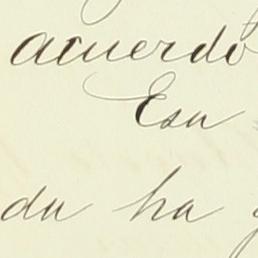 acuerdo
Esa
da ha